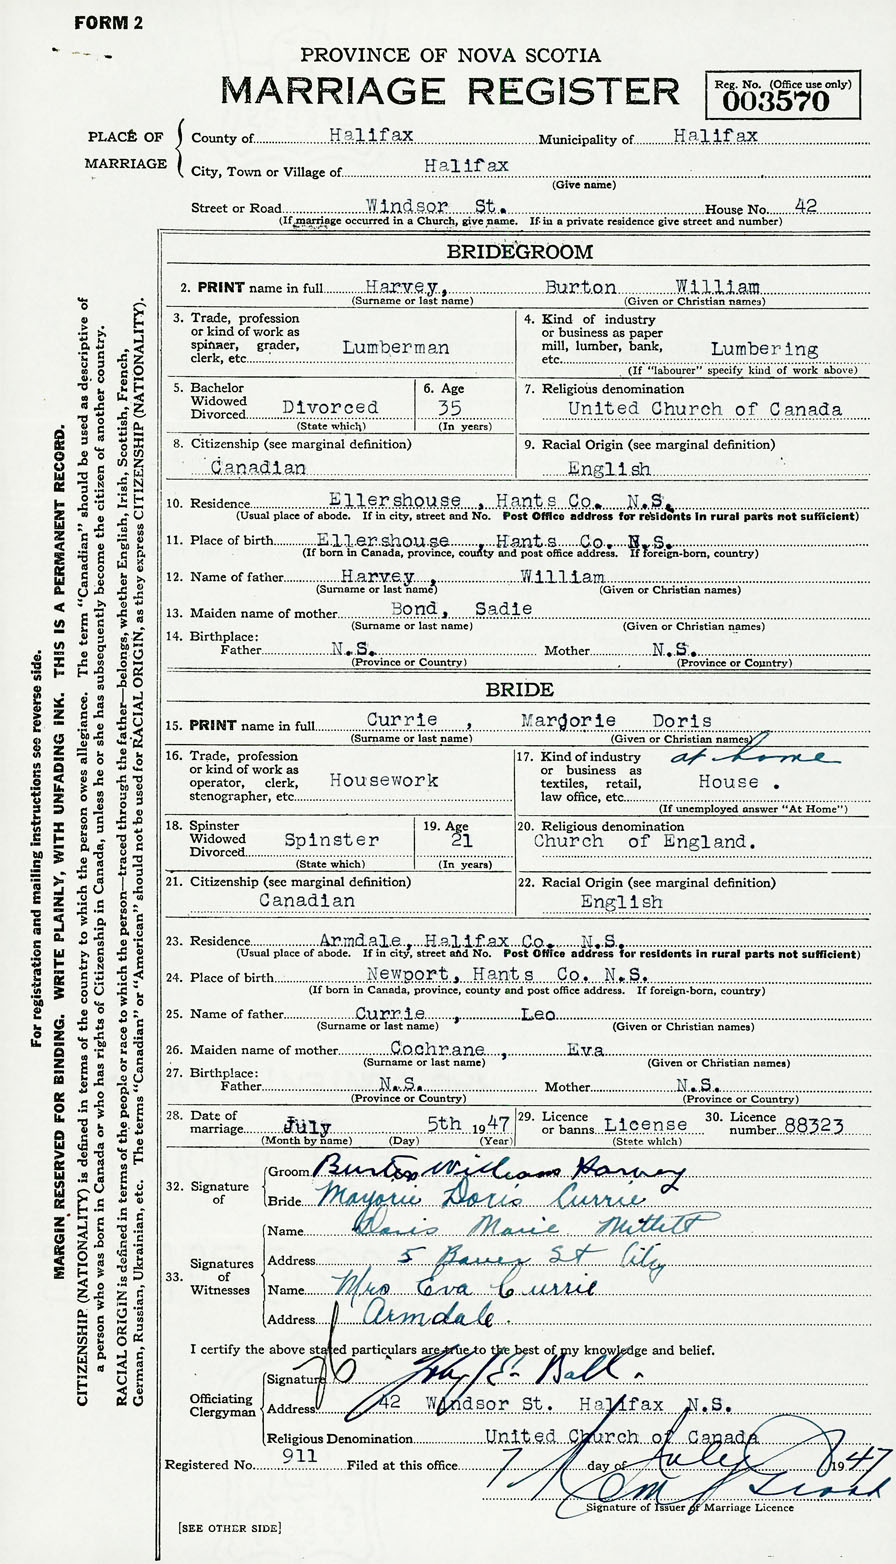 FORM 2
PROVINCE OF NOVA SCOTIA
MARRIAGE REGISTER
Reg. No. (Office use only)
003570
PLACE OF MARRIAGE
County of Halifax Municipality of Halifax
City, Town or Village of Halifax
(Give name)
Street or Road Windsor St. House No. 42
(If marriage occurred in a Church, give name. If in a private residence give street and number)
BRIDEGROOM
2. PRINT name in full Harvey, Burton William
(Surname or last name) (Given or Christian names)
3. Trade, profession or kind of work as spinner, grader, clerk, etc. Lumberman
4. Kind of industry or business as paper mill, lumber, bank, etc. Lumbering
(If "labourer" specify kind of work above)
5. Bachelor Widowed Divorced Divorced
(State which)
6. Age 35
(In years)
7. Religious denomination
United Church of Canada
8. Citizenship (see marginal definition)
Canadian
9. Racial Origin (see marginal definition)
English
10. Residence Ellershouse, Hants Co. N.S.
(Usual place of abode. If in city, street and No. Post Office address for residents in rural parts not sufficient)
11. Place of birth Ellershouse, Hants Co. N.S.
(If born in Canada, province, county and post office address. If foreign-born, country)
12. Name of father Harvey, William
(Surname or last name) (Given or Christian names)
13. Maiden name of mother Bond, Sadie
(Surname or last name) (Given or Christian names)
14. Birthplace:
Father N.S. Mother N.S.
(Province or Country) (Province or Country)
BRIDE
15. PRINT name in full Currie, Marjorie Doris
(Surname or last name) (Given or Christian names)
16. Trade, profession or kind of work as operator, clerk, stenographer, etc. Housework
17. Kind of industry or business as textiles, retail, law office, etc. at home House.
(If unemployed answer "At Home")
18. Spinster Widowed Divorced Spinster
(State which)
19. Age 21
(In years)
20. Religious denomination
Church of England.
21. Citizenship (see marginal definition)
Canadian
22. Racial Origin (see marginal definition)
English
23. Residence Armdale, Halifax Co. N.S.
(Usual place of abode. If in city, street and No. Post Office address for residents in rural parts not sufficient)
24. Place of birth Newport, Hants Co. N.S.
(If born in Canada, province, county and post office address. If foreign-born, country)
25. Name of father Currie, Leo
(Surname or last name) (Given or Christian names)
26. Maiden name of mother Cochrane, Eva
(Surname or last name) (Given or Christian names)
27. Birthplace:
Father N.S. Mother N.S.
(Province or Country) (Province or Country)
28. Date of marriage July 5th 1947
(Month by name) (Day) (Year)
29. Licence or banns License
(State which)
30. Licence number 88323
32. Signature of
Groom Burton William Harvey
Bride Marjorie Doris Currie
33. Signatures of Witnesses
Name Doris Marie
Address 5 Bauer St City
Name Mrs Eva Currie
Address Armdale.
I certify the above stated particulars are true to the best of my knowledge and belief.
Officiating Clergyman
Signature Ball
Address 42 Windsor St. Halifax N.S.
Religious Denomination United Church of Canada
Registered No. 911 Filed at this office 7 day of July 1947
Signature of Issuer of Marriage Licence
[SEE OTHER SIDE]
For registration and mailing instructions see reverse side.
MARGIN RESERVED FOR BINDING. WRITE PLAINLY, WITH UNFADING INK. THIS IS A PERMANENT RECORD.
CITIZENSHIP (NATIONALITY) is defined in terms of the country to which the person owes allegiance. The term "Canadian" should be used as descriptive of
a person who was born in Canada or who has rights of Citizenship in Canada, unless he or she has subsequently become the citizen of another country.
RACIAL ORIGIN is defined in terms of the people or race to which the person—traced through the father—belongs, whether English, Irish, Scottish, French,
German, Russian, Ukrainian, etc. The terms "Canadian" or "American" should not be used for RACIAL ORIGIN, as they express CITIZENSHIP (NATIONALITY).